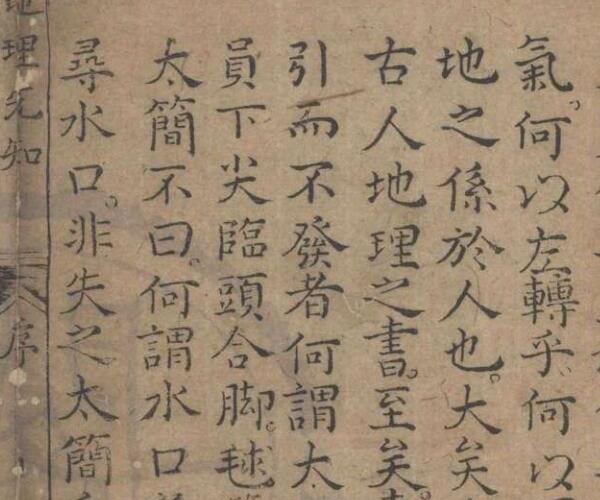 氣何以左轉乎何以
地之係於人也大矣
古人地理之書至矣
引而不發者何謂大
員下尖臨頭合脚毬
太簡不曰何謂水口
尋水口非失之太簡
地理先知
序